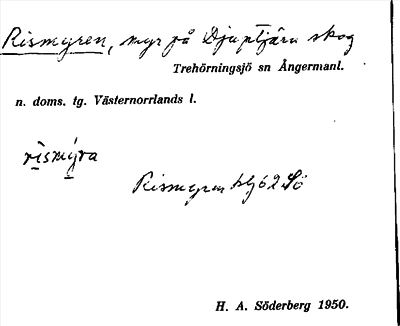 Rismyren, myr på Djuptjärn skog
Trehörningsjö sn Ångermanl.
n. doms. tg. Västernorrlands l.
rismyra
Rismyren
H. A. Söderberg 1950.